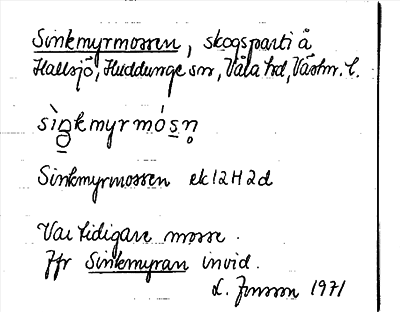 Sinkmyrmossen, skogsparti å
Hallsjö, Huddunge sn, Våla hd, Västm. l.
sìn̥kmyrmósn̥
Sinkmyrmossen ek 12H2d
Var tidigare mosse.
Jfr Sinkmyran invid.
L. Jonsson 1971